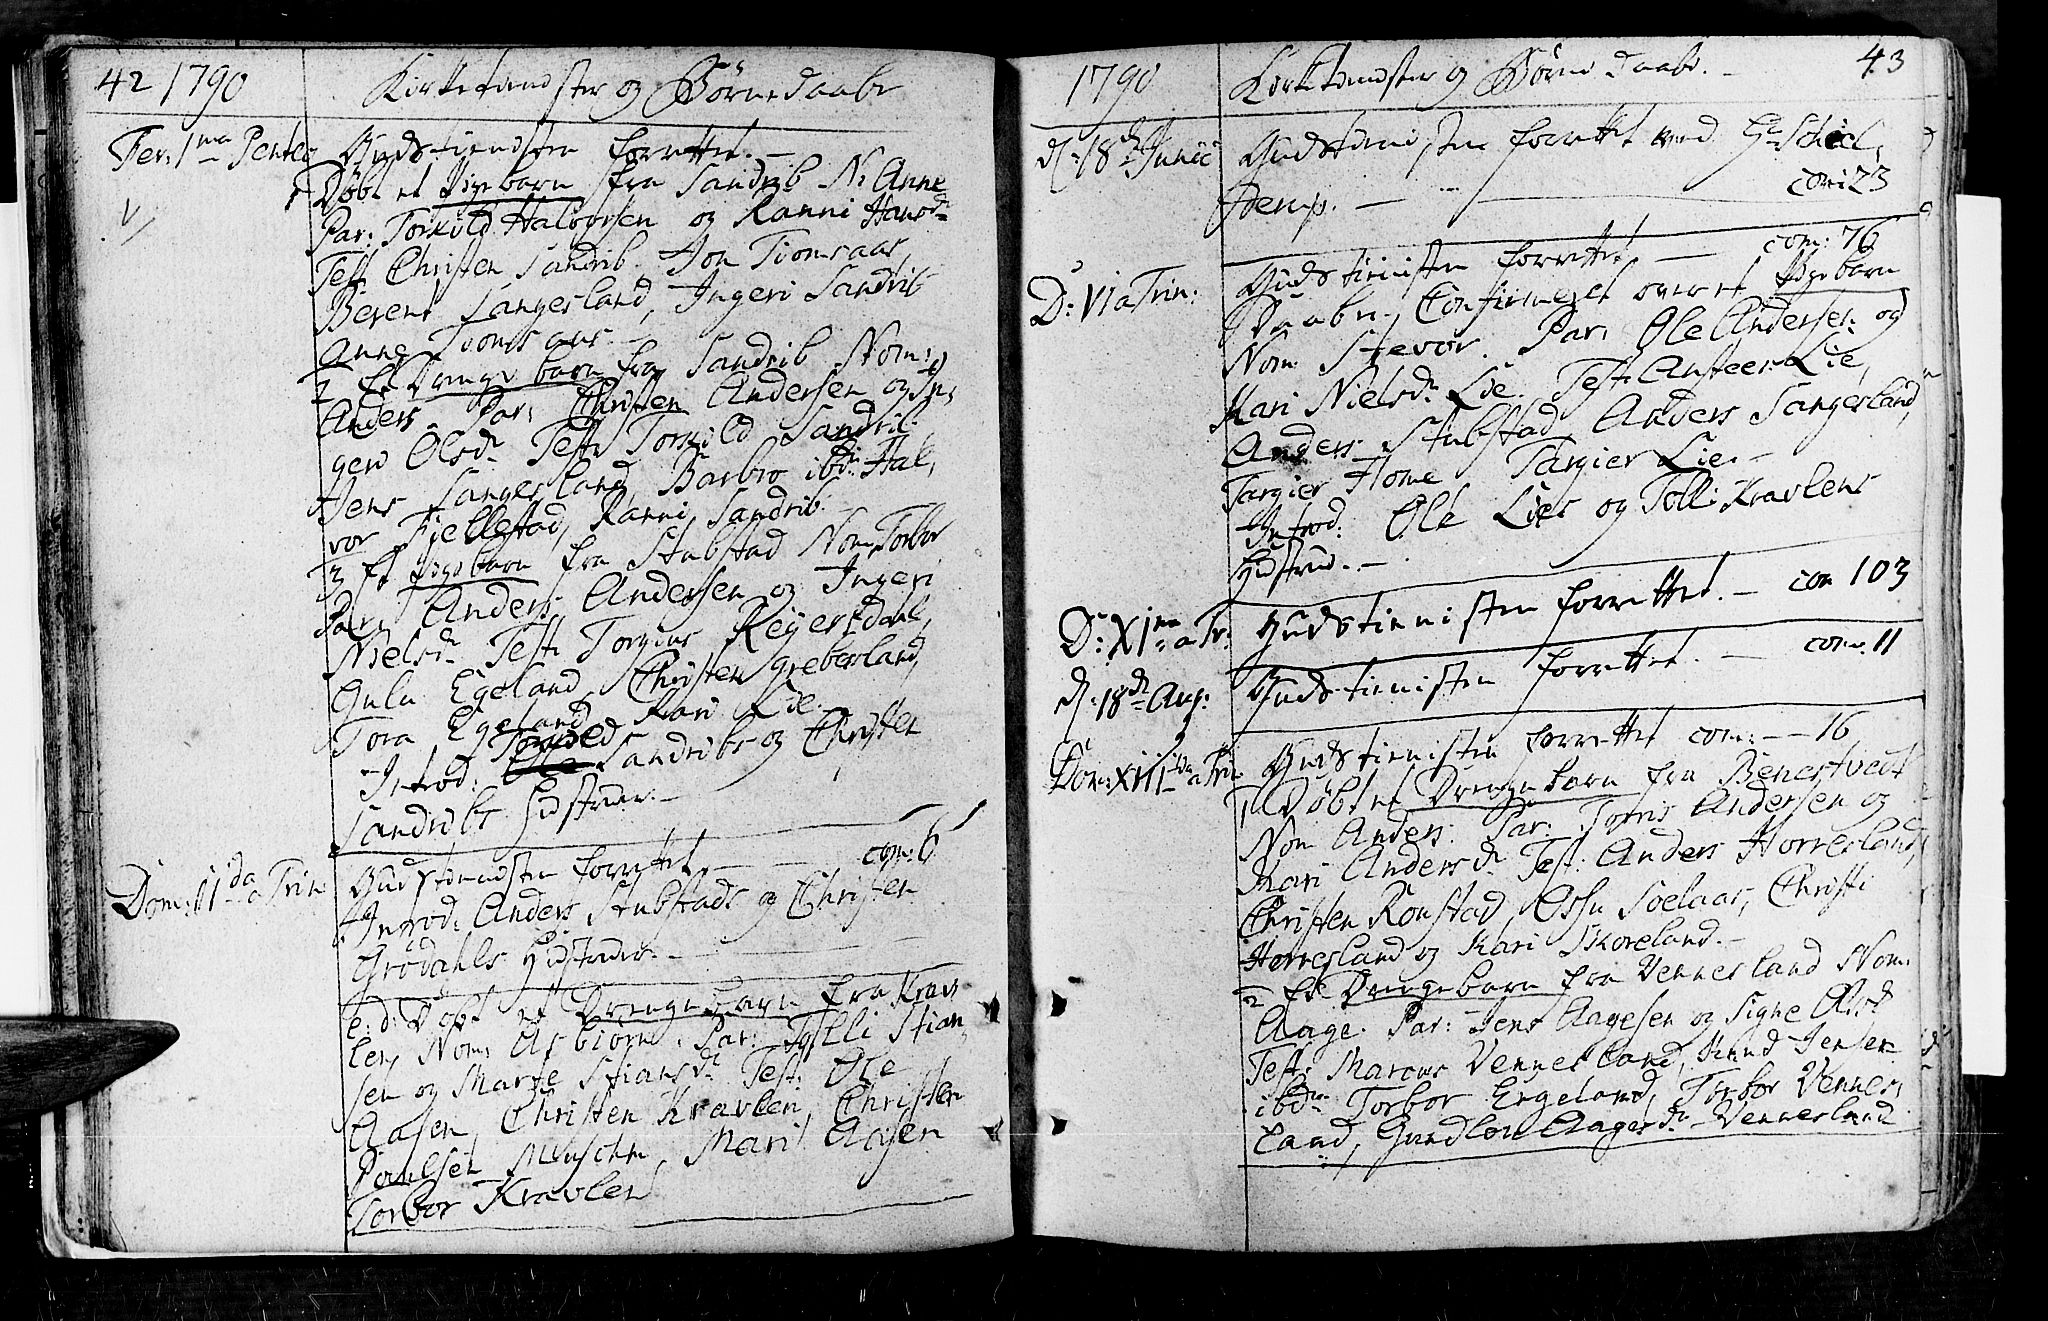 42 1790
Kirketienester og Børnedaabe
Fer: 1ma Pentec
Gudstienesten forrettet. —
1 Døbt et Pigebarn fra Sandrib N: Anne
Par: Torkild Halvorsen og Ranni Hansdr
Test Christen Sandrib, Jon Tiomsaas,
Berent Langerland, Ingeri Sandrib
Anne Tiomsaas. —
2 Et Drengebarn fra Sandrib Nom:
Anders. Par: Christen Andersen og In,
geri Olsdr Test: Torkild Sandrib
Jens Langerland, Barbro ibdm Hal,
vor Fjellestad, Ranni Sandrib.
3 Et Pigebarn fra Stubstad Nom Torbor
Par: Anders Andersen og Ingeri
Nielsdr Test: Torgius Reyersdahl,
Gulu Egeland Christen Greberland,
Tora Egeland Kari Lie.
Introd: Torkild Sandribs og Christen
Sandribs Hustruer. —
Dom: 11da a Trin:
Gudstienesten forrettet. — — com: 6
Introd: Anders Stubstads og Christen
Grødahls Hustruer. —
e: d: Døbt et Drengebarn fra Krav
len, Nom: Asbiørn. Par: Tolli Stian,
sen og Marte Stiansdr. Test: Ole
Aasen, Christen Kravlen, Christen
Poulsen, Mari Aasen
Torbor Kravlen
1790
Kirketienester og Børnedaabe. —
43
d: 18de Junii
Gudstienesten forrettet ved Hr
com: 23
D: VI a Trin:
Gudstienesten forrettet — com: 76
Daaben Confirmeret over et Pigebarn
Nom: Stevor. Par: Ole Andersen og
Kari Nielsdr Lie. Test: Ansteen Lie,
Anders Stubstad, Anders Langerland,
Targier Home Targier Lie. —
Introd: Ole Lies og Tolli Kravlens
Hustrue. —
D: XIma a Tr:
Gudstienesten forrettet. — com 103
d: 18de Aug:
Gudstienesten forrettet. — com: 11
Dom: XIII a Trin
Gudstienesten forrettet com: — 16
Døbt et Drengebarn fra Benestvedt
Nom Anders. Par: Torris Andersen og
Kari Andersdr Test: Anders Horresland,
Christen Ronstad, Solaas, Christi
Horresland og Kari Skoreland. —
2 Et Drengebarn fra Vennesland Nom:
Aage. Par: Jens Aagesen og Signe Olsdr
Test: Marcus Vennesland, Knud Jensen
ibdm Torbor Engeland, Torbor Vennes,
land, Gundlou Aagesdr Vennesland